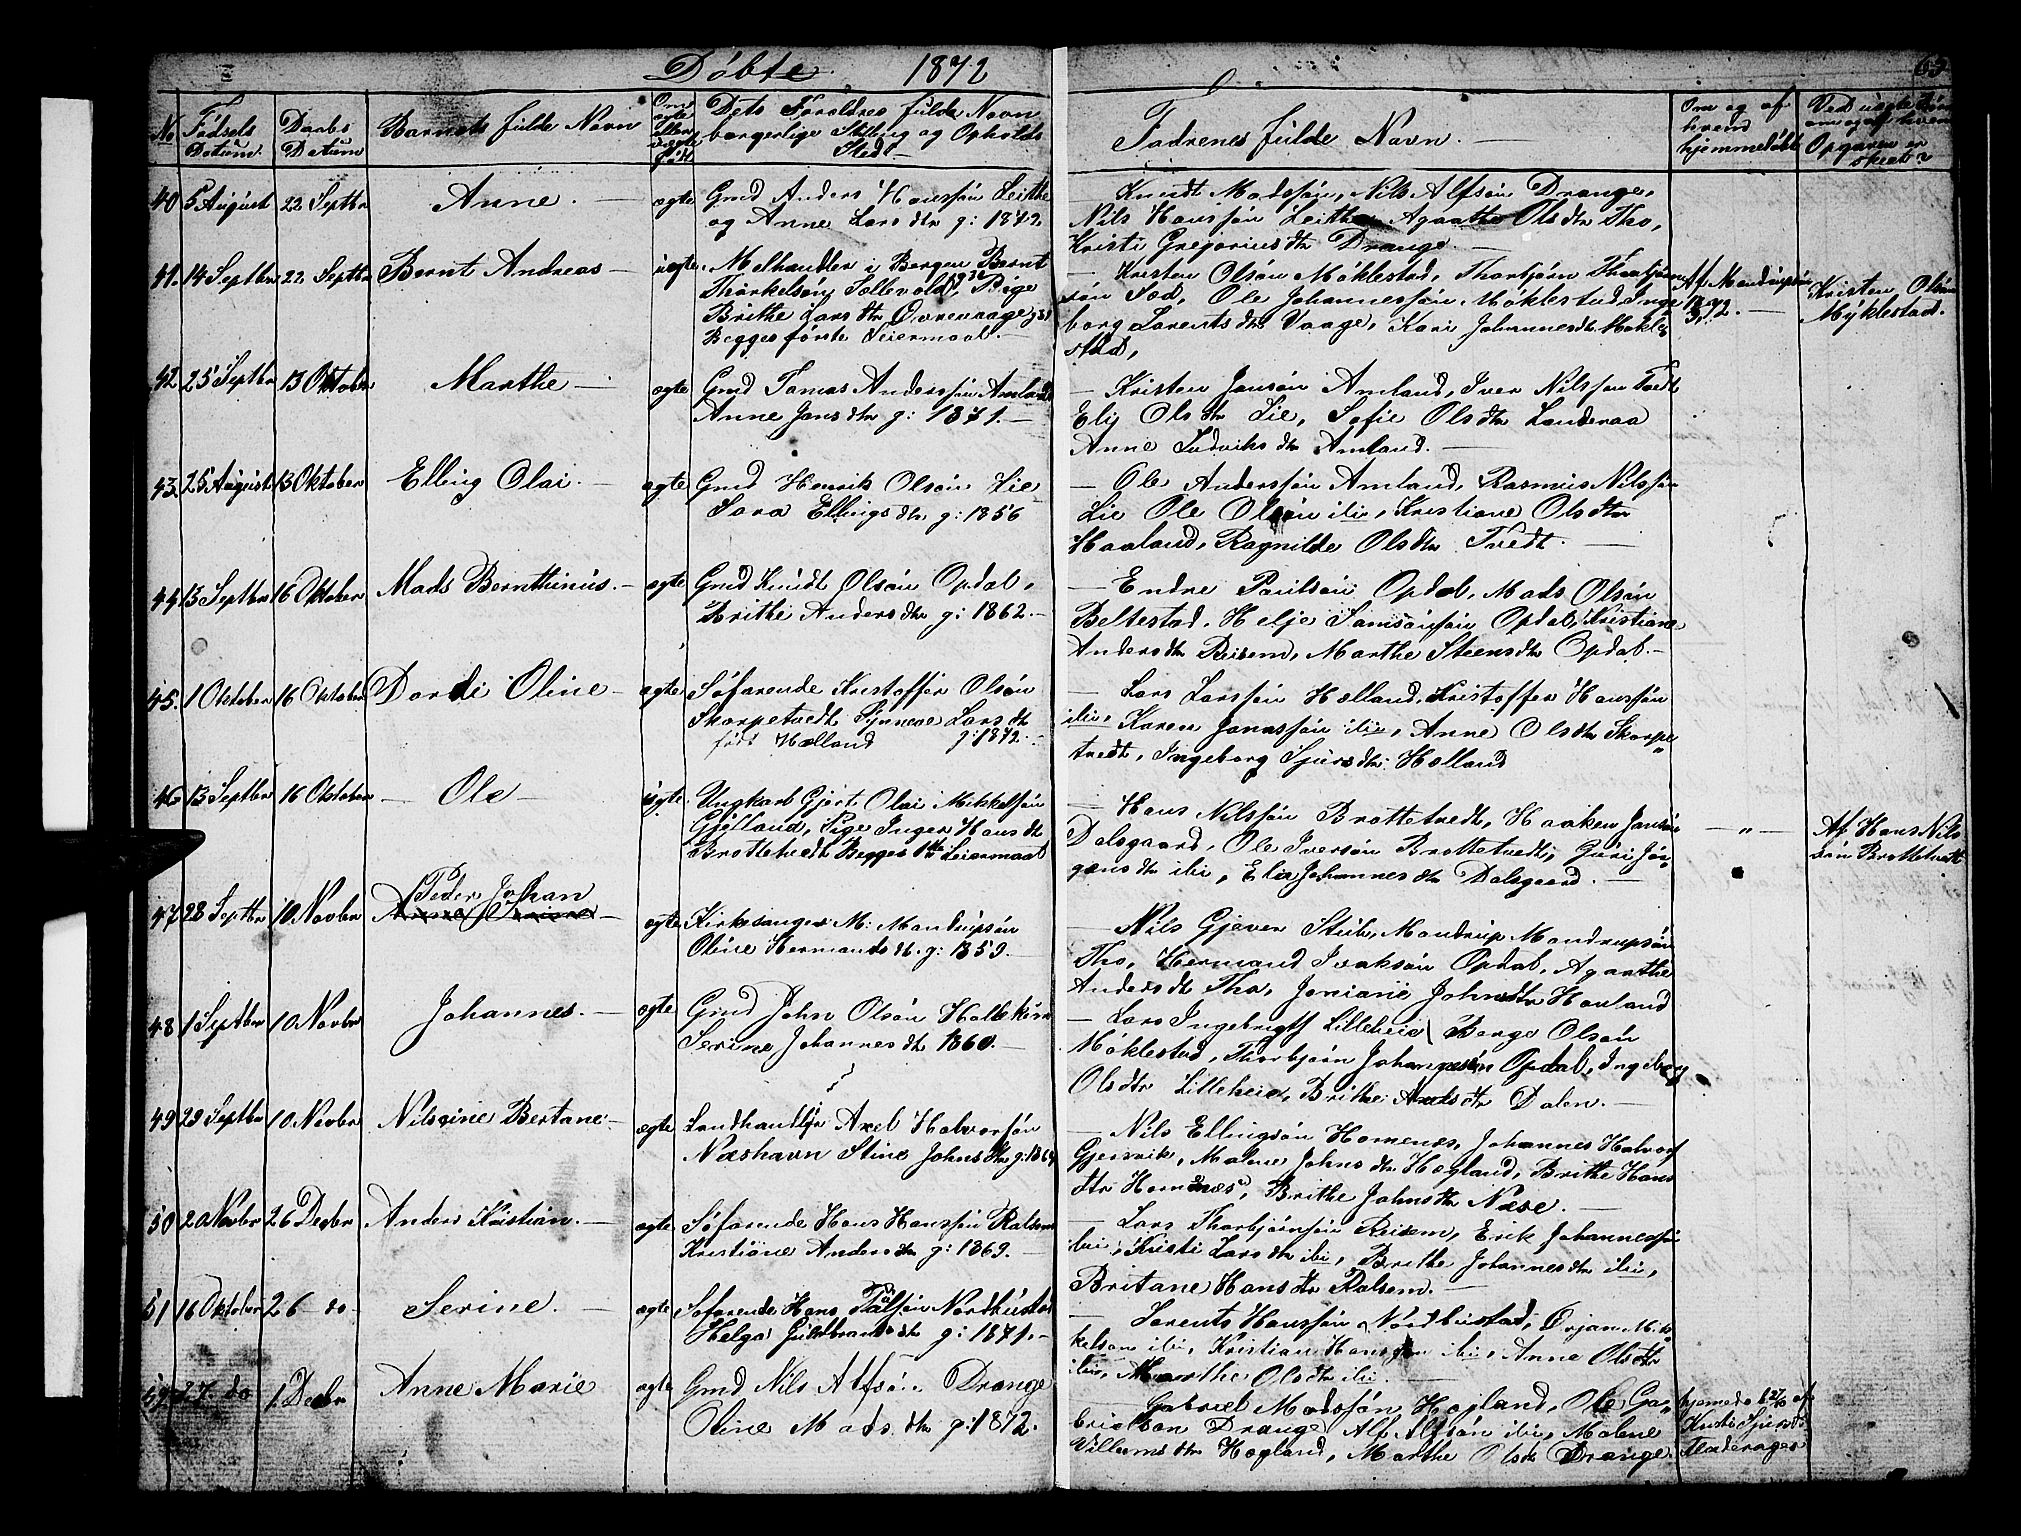 Døbte 1872
63
No
Fødsels Datum.
Daabs Datum
Barnets fulde Navn
Om ægte eller uægte født
Dets Forældres fulde Navn borgerlige Stilling og Opholds Sted
Fadrenes fulde Navn.
Om og af hvem hjemmedøbt
Ved uægte Børn om og af hvem Opgaven er skeet?
40 5 August 22 Septbr Anne. ægte Gmd Anders Hanssøn Leithe
og Anne Lars dtr g: 1872.
Knudt Madssøn, Nils Alfsøn Drange,
Nils Hanssøn Leithe Agaathe Olsdtr Tho,
Kristi Gregorius dtr Drange.
41. 14 Septbr 22 Septbr Bernt Andreas uægte. Melhandler i Bergen Bernt
Thorkelsøn Sellevold, Pige
Brithe Lars dtr Øvrevaage
Begges første Leiermaal.
Kristen Olsøn Møklestad, Thorbjørn Thorbjørn
søn Tod, Ole Johannessøn Møklestad, Inge
borg Lorents dtr Vaage, Kari Johannesdtr Møkle
stad,
Af Mandrupsøn
Kristen Olsøn
Myklestad.
42 25 Septbr 13 Oktober Marthe ægte Gmd Tomas Anderssøn Amland
Anne Jans dtr g: 1871.
Kristen Jansøn Amland, Iver Nilssøn Tvedt
Elij Ols dtr Lie, Sofie Olsdtr Landeraa
Anne Ludviks dtr Amland.
43. 25 August 13 Oktober Elling Olai. ægte Gmd Henrik Olsøn Lie
Sara Ellings dtr g: 1856
Ole Anderssøn Amland, Rasmus Nilssøn
Lie Ole Olsøn ibi, Kristiane Olsdtr
Haaland, Ragnilde Olsdtr Tvedt.
44 13 Septbr 16 Oktober Mads Bernthinus. ægte Gmd Knudt Olsøn Opdal,
Brithe Anders dtr g: 1862.
Endre Poulsøn Opdal, Mads Olsøn
Beltestad, Helje Samsonsøn Opdal, Kristiane
Anders dtr Reisem, Marthe Steens dtr Opdal.
45. 1 Oktober 16 Oktober Dordi Oline ægte Søfarende Kristoffer Olsøn
Skorpetvedt Synneve Lars dtr
født Hælland g: 1872.
Lars Larssøn Hælland, Kristoffer Hanssøn
ibi, Karen Jonassøn ibi, Anne Olsdtr Skorpe
tvedt, Ingeborg Sjurs dtr Hælland
46 13 Septbr 16 Oktober Ole uægte. Ungkarl Gjert Olai Mikkelsøn
Gjelland, Pige Inger Hans dtr
Brottetvedt Begges 1ste Leiermaal
Hans Nilssøn Brottetvedt, Haaken Jansøn
Dalsgaard, Ole Iversøn Brottetvedt, Guri Jør
gens dtr ibi, Elie Johannes dtr Dalsgaard.
"
Af Hans Nils
søn Brottetvett
47 28 Septbr 10. Novbr Peder Johan
ægte Kirkesanger M: Mandrupsøn
Oline Hermands dtr. g: 1859.
Nils Gjever Stub, Mandrup Mandrupsøn
Tho, Hermand Isaksøn Opdal, Agaathe
Anders dtr Tho, Joniane Johns dtr Hauland
48 1 Septbr 10. Novbr Johannes. ægte Gmd John Olsøn Hallekirn
Serine Johannes dtr 1860.
Lars Ingebrigts Lilleheie, Børge Olsøn
Møklestad, Thorbjørn Johannessøn Opdal, Ingeborg
Olsdtr Lilleheie, Brithe Anders dtr Dalen.
49 23 Septbr 10. Novbr Nilsine Bertane. ægte Landhandler Axel Halvorsøn
Næshavn Stine Johns dtr g: 1864
Nils Ellingsøn Homenæs, Johannes Halvors
Gjersvik, Malene Johns dtr Hogland, Brithe Hans
dtr Homenæs, Brithe Johns dtr Næse.
50 20 Novbr 26 Decbr Anders Kristian. ægte Søfarende Hans Hanssøn Ralsem
Kristiane Anders dtr g: 1869.
Lars Thorbjørnsøn Reisem, Erik Johannessøn
ibi, Kristi Lars dtr ibi, Brithe Johannes dtr ibi,
Britane Hans dtr Ralsem.
51 16 Oktober 26 do Serine. ægte Søfarende Hans Palsøn Nordhustad
Helga Guldbrands dtr g: 1871.
Lorents Hanssøn Nordhustad, Ørjan Mik
kelsøn ibi, Kristian Hanssøn ibi, Anne Ols dtr
ibi, Marthe Ols dtr ibi.
52 27 do 1. Decbr Anne Marie ægte Gmd Nils Alfsøn Drange
Oline Mads dtr g: 1872.
Gabriel Madssøn Hogland, Ole Ga
brielsøn Drange, Alf Alfsøn ibi, Malene
Villums dtr Hogland, Marthe Ols dtr Drange
hjemmedøbt 27/10 af
Kristi Sjursdtr
Fladerager